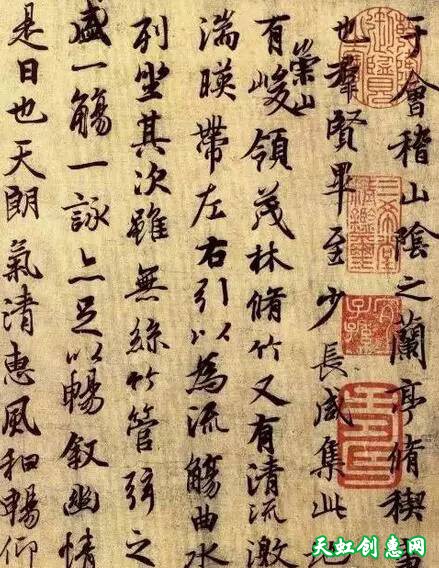 于會稽山陰之蘭亭脩稧事
也羣賢畢至少長咸集此地
有崇山峻領茂林脩竹又有清流激
湍暎帶左右引以為流觴曲水
列坐其次雖無絲竹管弦之
盛一觴一詠亦足以暢敘幽情
是日也天朗氣清惠風和暢仰
三希堂精鑑璽
宜子孫
天虹创意网